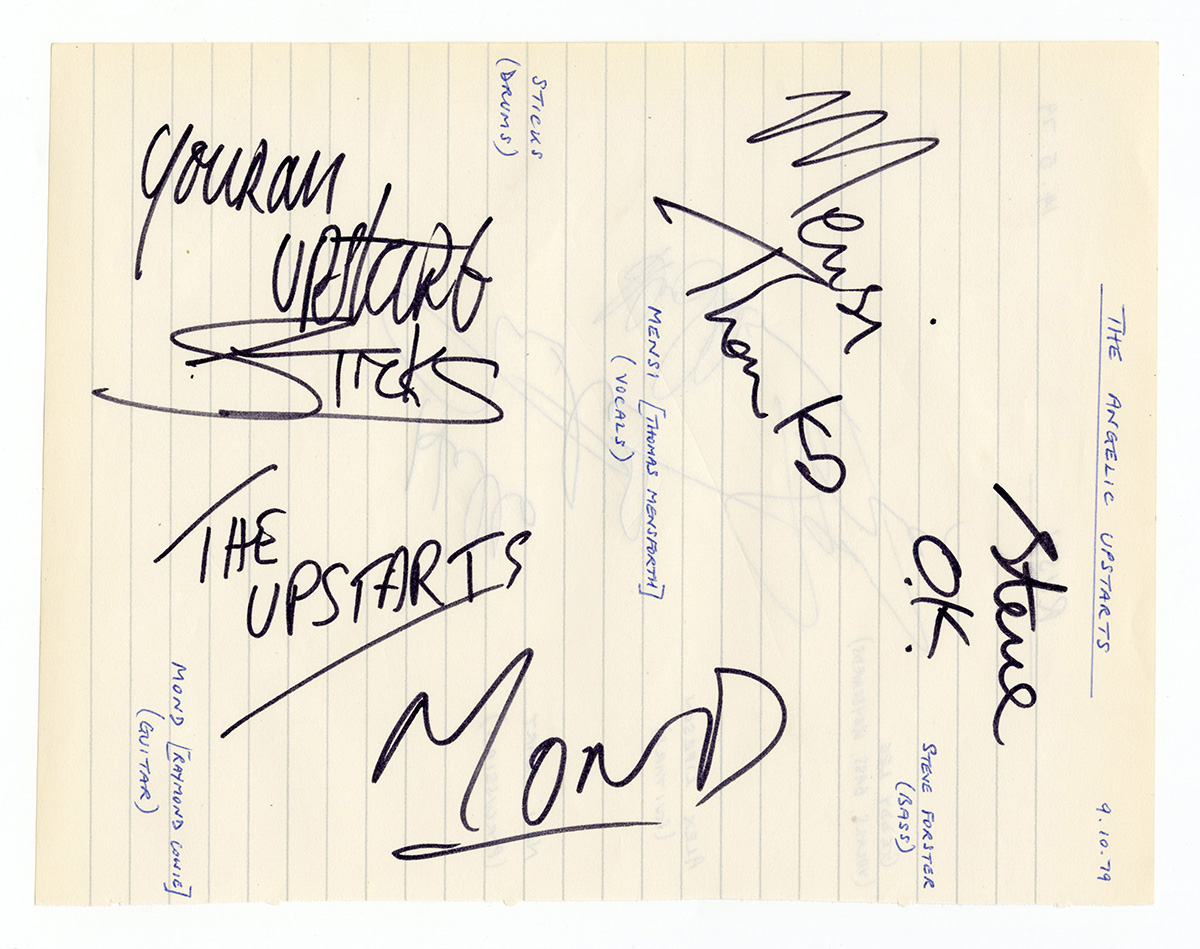 THE ANGELIC UPSTARTS
9.10.79
Steve
O.K.
STEVE FORSTER
(BASS)
Mensi
MENSI [THOMAS MENSFORTH]
(VOCALS)
STICKS
(DRUMS)
YOURAN
UPSTART
STICKS
THE
UPSTARTS
MOND
MOND [RAYMOND COWIE]
(GUITAR)